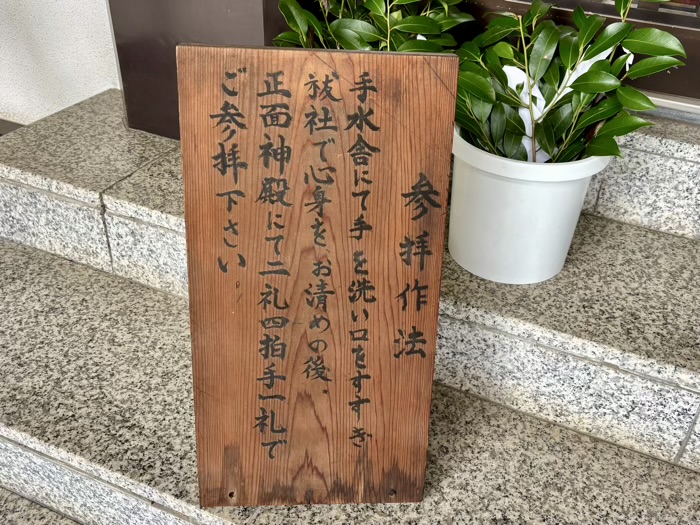 参拝作法
手水舎にて手を洗い口をすすぎ
祓社で心身をお清めの後、
正面神殿にて二礼四拍手一礼で
ご参拝下さい。